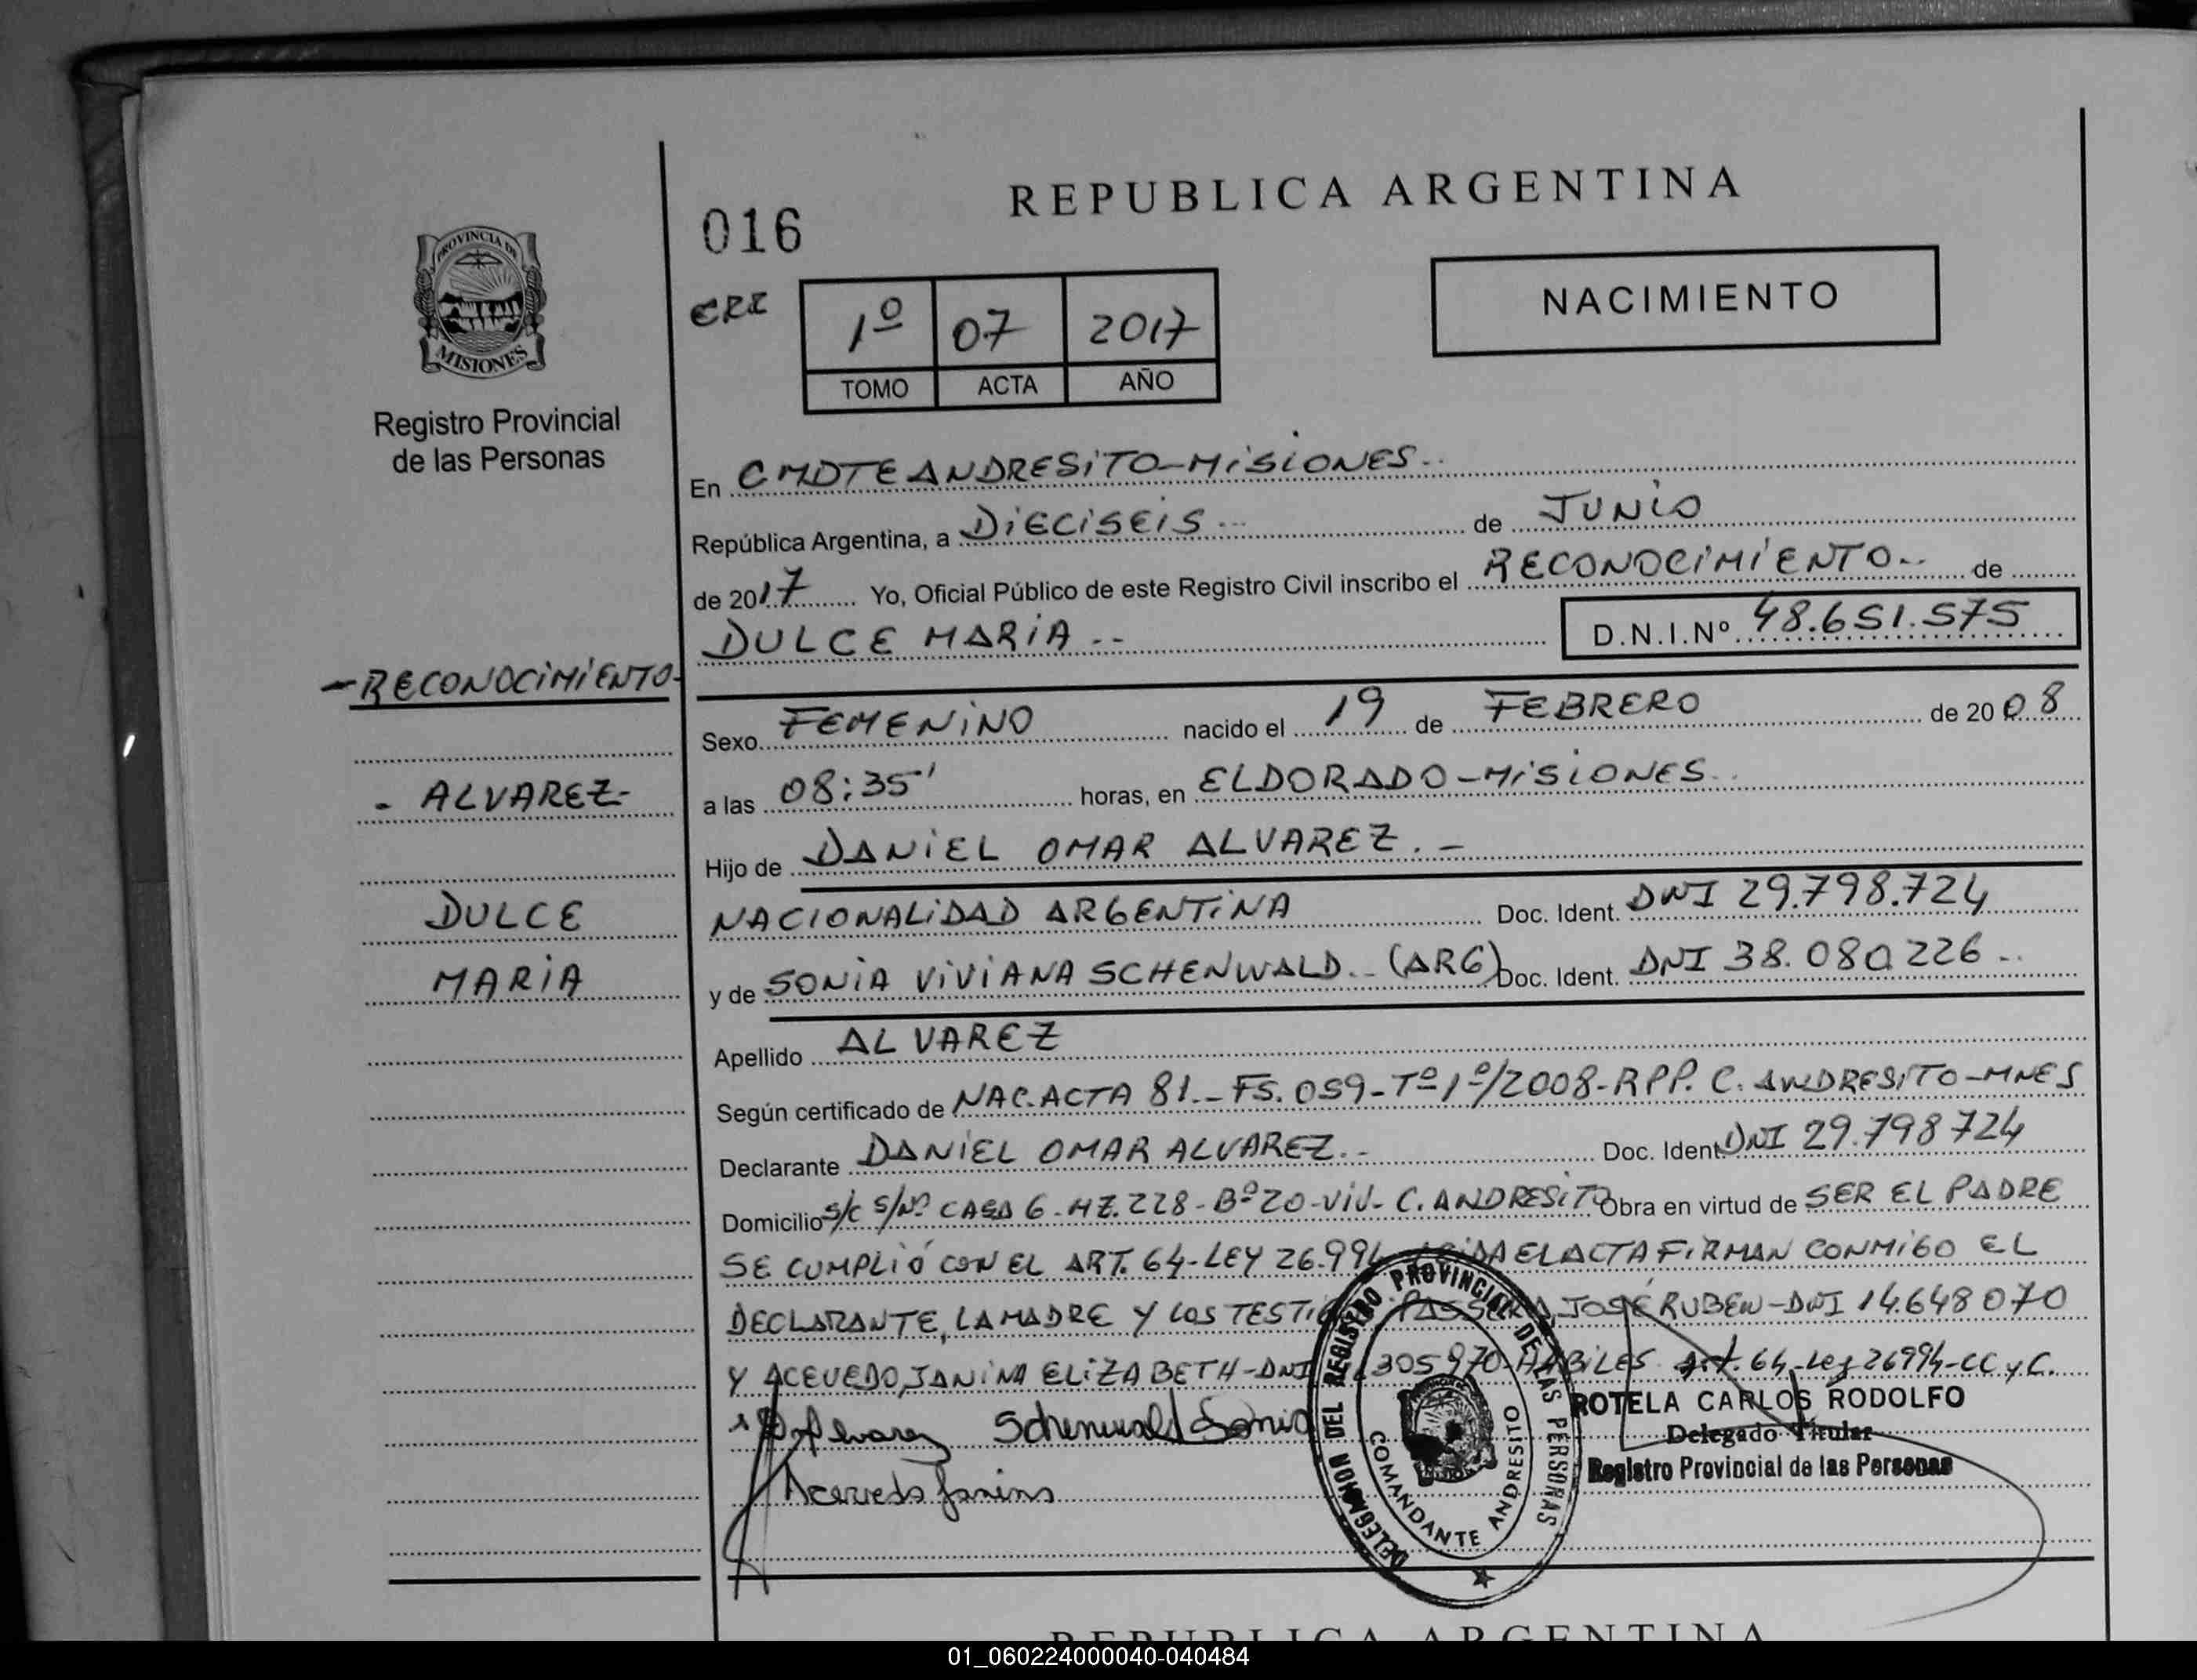 REPUBLICA ARGENTINA
016
PROVINCIA DE
MISIONES
Registro Provincial
de las Personas
CRI
1º 07 2017
TOMO ACTA AÑO
NACIMIENTO
En CMDTE ANDRESITO-MISIONES..
República Argentina, a DIECISEIS... de JUNIO
de 2017 Yo, Oficial Público de este Registro Civil inscribo el RECONOCIMIENTO.. de
DULCE MARIA -- D.N.I.Nº 48.651.575
-RECONOCIMIENTO-
Sexo FEMENINO nacido el 19 de FEBRERO de 2008
- ALVAREZ-
a las 08:35' horas, en ELDORADO-MISIONES..
Hijo de DANIEL OMAR ALVAREZ. -
DULCE
NACIONALIDAD ARGENTINA Doc. Ident. DNI 29.798.724
MARIA
y de SONIA VIVIANA SCHENWALD.. (ARG) Doc. Ident. DNI 38.080.226 ..
Apellido ALVAREZ
Según certificado de NAC. ACTA 81.- FS. 059-Tº1º/2008-RPP. C. ANDRESITO-MNES
Declarante DANIEL OMAR ALVAREZ.- Doc. Ident DNI 29.798724
Domicilio S/C S/Nº CASA 6-MZ.228-Bº20-VIV- C. ANDRESITO Obra en virtud de SER EL PADRE
SE CUMPLIÓ CON EL ART. 64-LEY 26.994 EL ACTA FIRMAN CONMIGO EL
DECLARANTE, LA MADRE Y LOS JOSÉ RUBEN-DNI 14.648070
Y ACEVEDO, JANINA ELIZABETH-DNI 305970-HABILES Art. 64-Ley 26994-CC y C.
ROTELA CARLOS RODOLFO
Alvarez Schenwald Sonia
Delegado Titular
Registro Provincial de las Personas
Acevedo Janina
DELEGACION DEL REGISTRO PROVINCIAL DE LAS PERSONAS
COMANDANTE ANDRESITO
REPUBLICA ARGENTINA
01_060224000040-040484